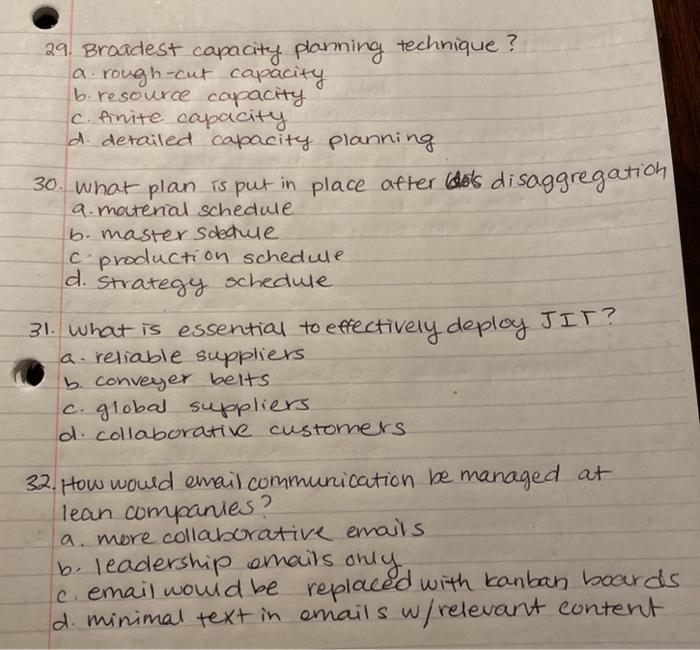 29. Broadest capacity planning technique?
a. rough-cut capacity
b. resource capacity
c. finite capacity
d. detailed capacity planning
30. What plan is put in place after disaggregation
a. material schedule
b. master schedule
c. production schedule
d. strategy schedule
31. What is essential to effectively deploy JIT?
a. reliable suppliers
b. conveyer belts
c. global suppliers
d. collaborative customers
32. How would email communication be managed at
lean companies?
a. more collaborative emails
b. leadership emails only
c. email would be replaced with kanban boards
d. minimal text in emails w/relevant content